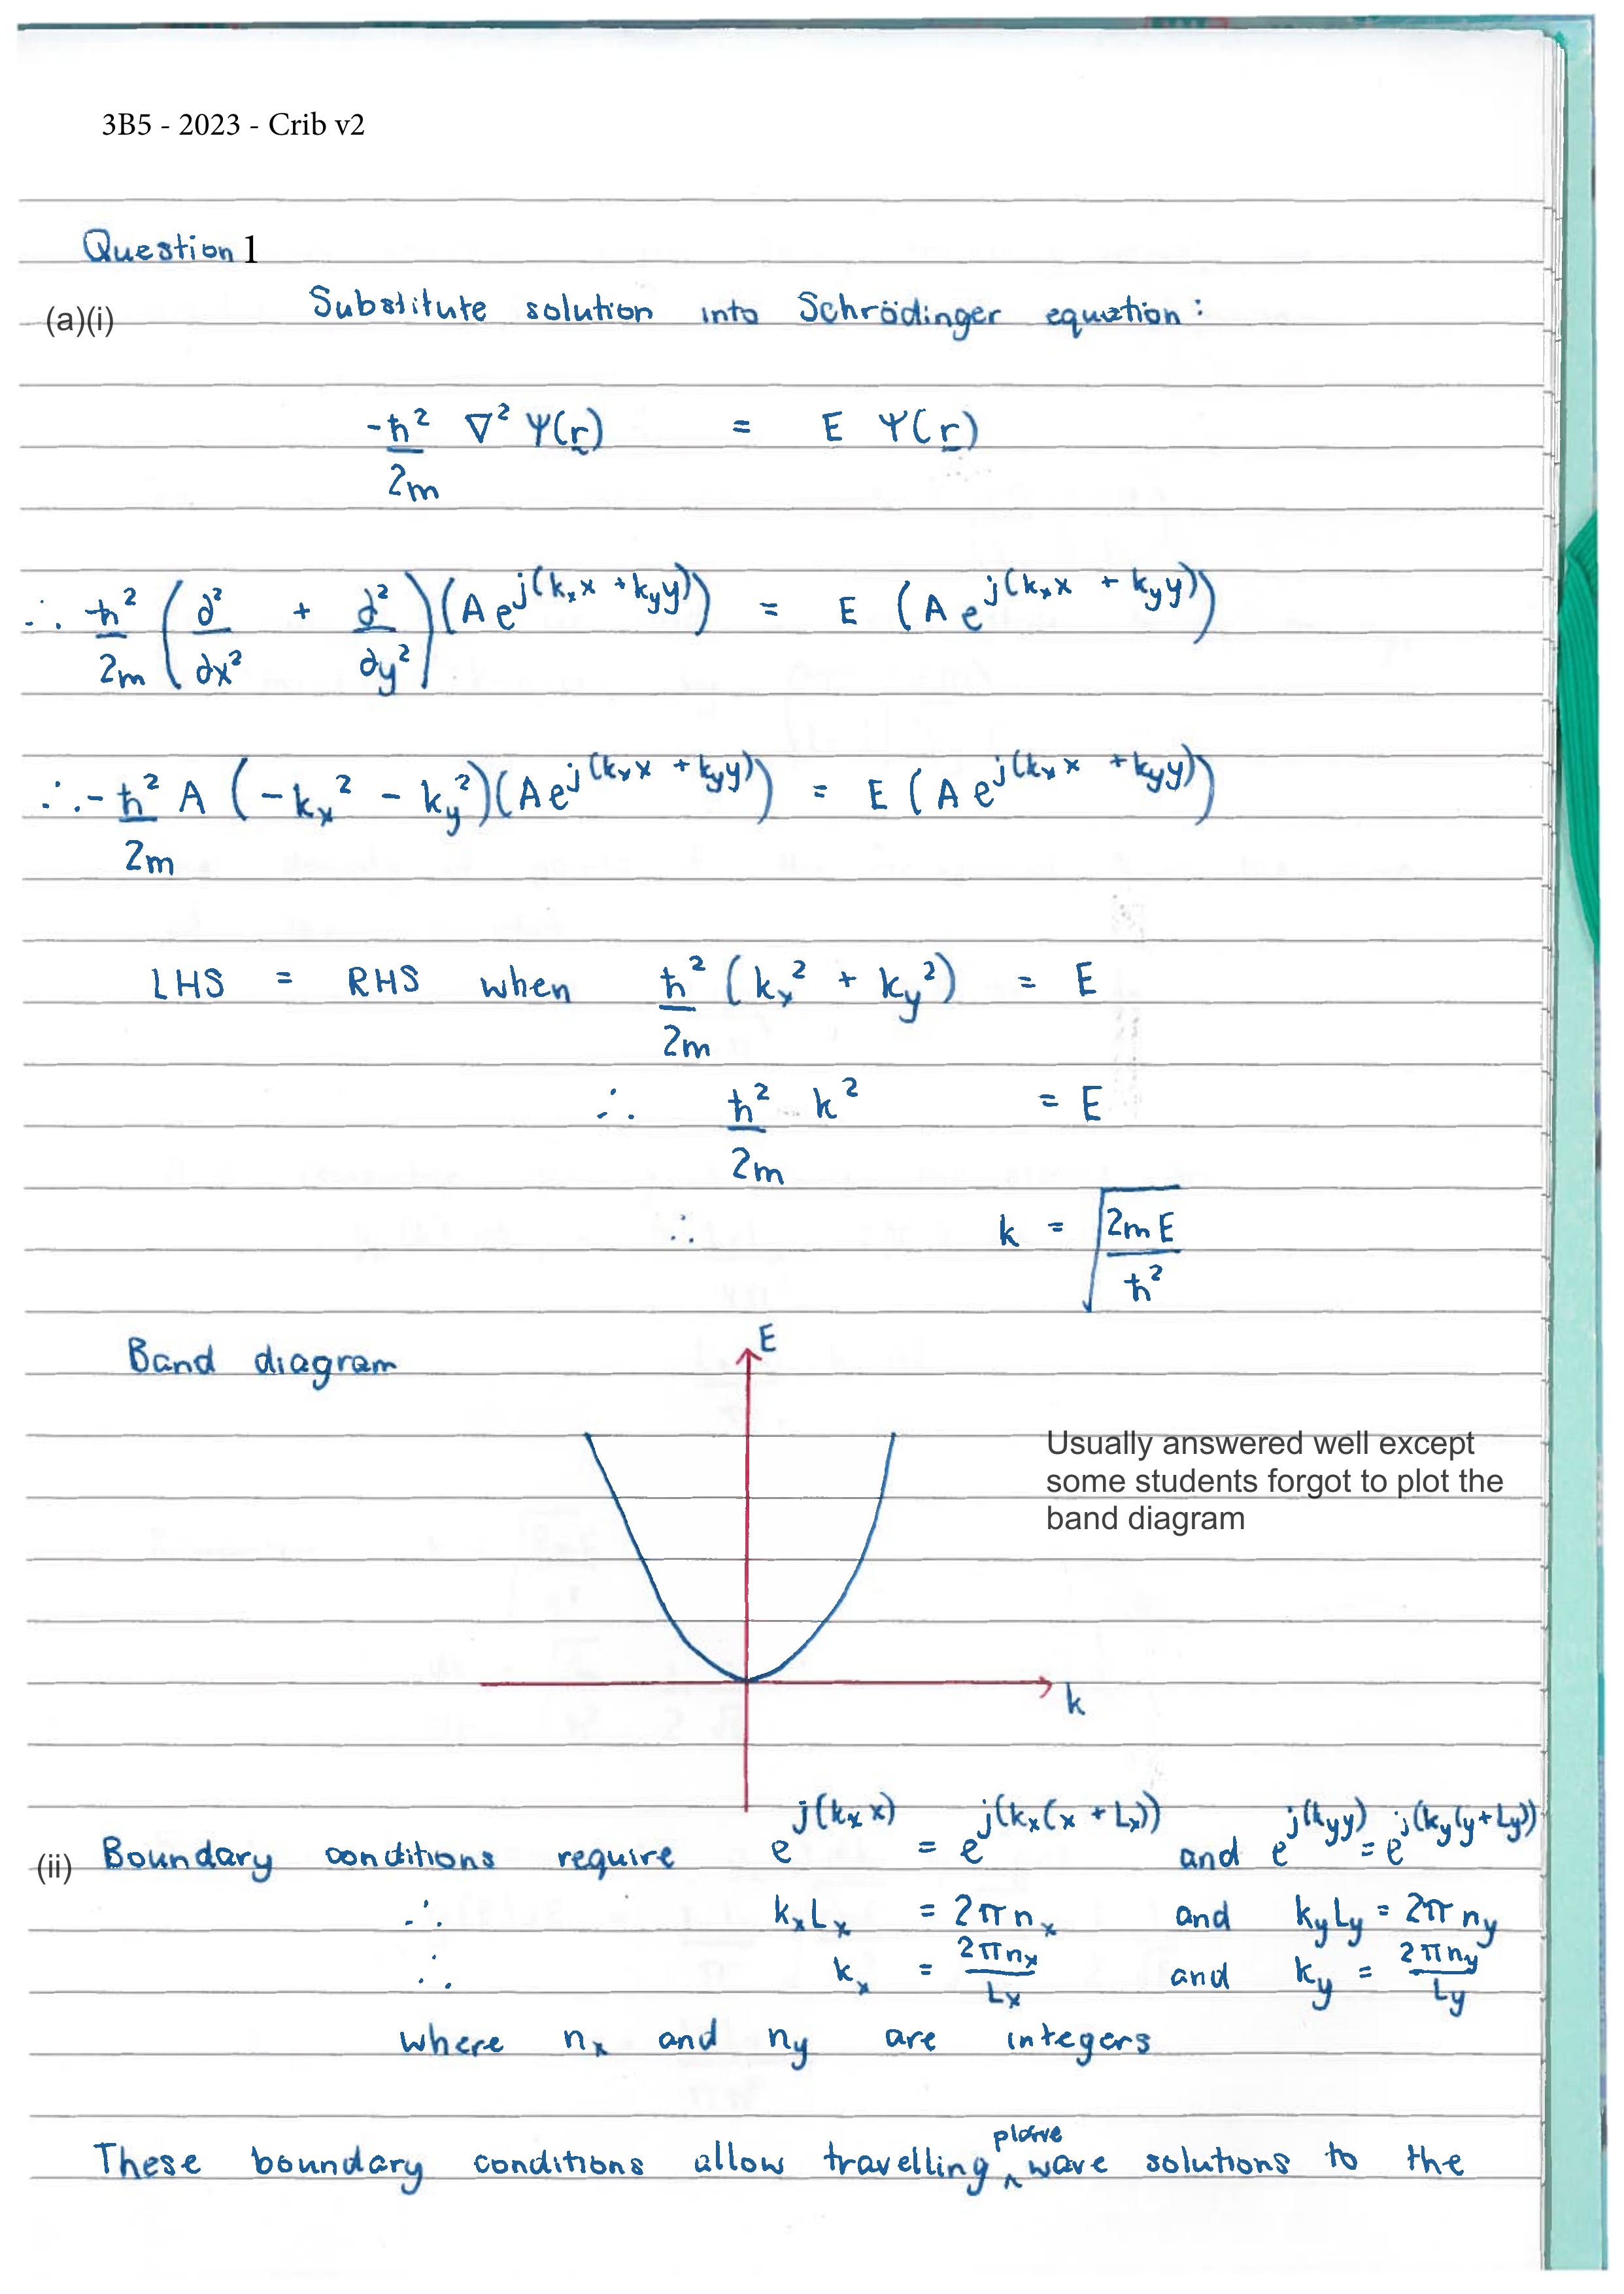 3B5 - 2023 - Crib v2
Question 1
(a)(i) Substitute solution into Schrödinger equation:
-ħ²/2m ∇² Ψ(r) = E Ψ(r)
∴ ħ²/2m (∂²/∂x² + ∂²/∂y²)(A e^j(kₓx + k_y y)) = E (A e^j(kₓx + k_y y))
∴ -ħ²/2m A (-kₓ² - k_y²)(A e^j(kₓx + k_y y)) = E (A e^j(kₓx + k_y y))
LHS = RHS when ħ²/2m (kₓ² + k_y²) = E
∴ ħ²/2m k² = E
∴ k = √(2mE/ħ²)
Band diagram
E
Usually answered well except
some students forgot to plot the
band diagram
k
(ii) Boundary conditions require e^j(kₓx) = e^j(kₓ(x + Lₓ)) and e^j(k_y y) = e^j(k_y(y + L_y))
∴ kₓLₓ = 2πnₓ and k_y L_y = 2π n_y
∴ kₓ = 2πnₓ/Lₓ and k_y = 2πn_y/L_y
where nₓ and n_y are integers
These boundary conditions allow travelling plane wave solutions to the